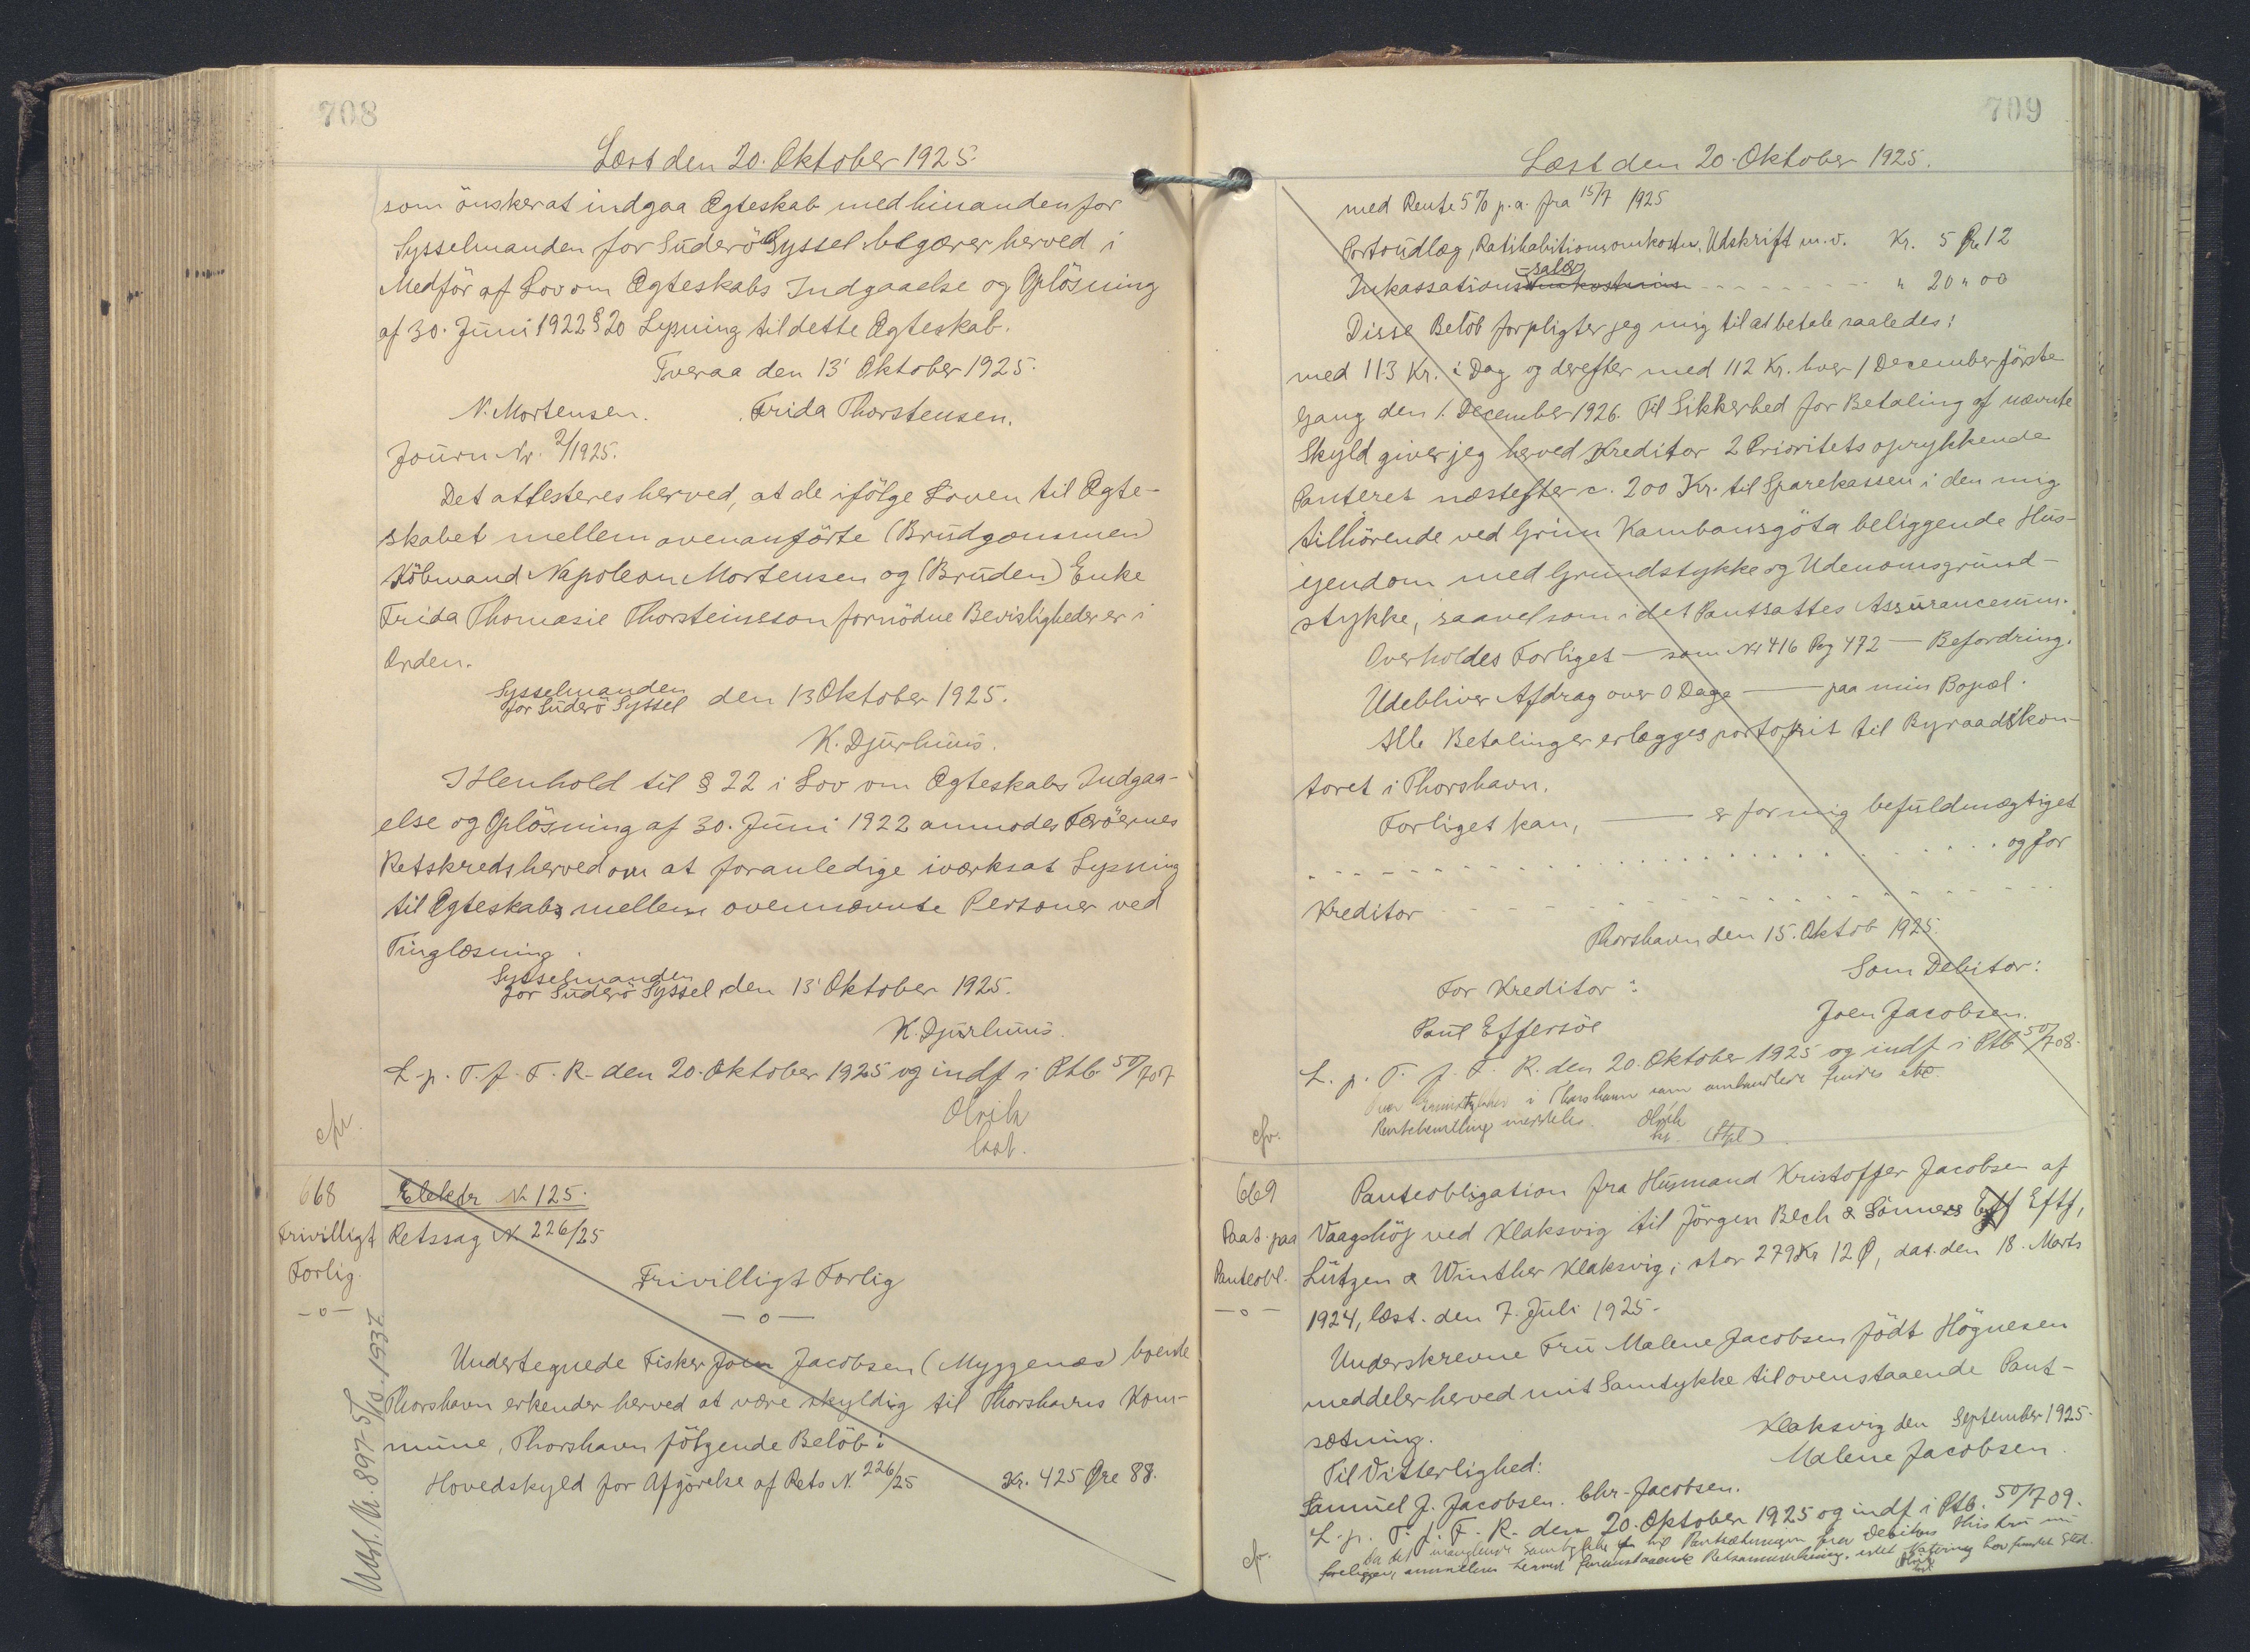 708
Læst den 20. Oktober 1925.
som önsker at indgaa Ægteskab med hinanden for
Sysselmanden for Suderö Syssel begærer herved i
Medför af Lov om Ægteskabs Indgaaelse og Oplösning
af 30. Juni 1922 § 20 Lysning til dette Ægteskab.
Tveraa den 13' Oktober 1925.
N. Mortensen. Frida Thorstensen.
Journ Nr. 2/1925.
Det attesteres herved, at de ifölge Loven til Ægte-
skabet mellem ovenanförte (Brudgommen)
Köbmand Napoleon Mortensen og (Bruden) Enke
Frida Thomasie Thorsteinsson fornödne Bevisligheder er i
Orden.
Sysselmanden
for Suderö Syssel den 13 Oktober 1925.
K. Djurhuus.
I Henhold til § 22 i Lov om Ægteskabs Indgaa-
else og Oplösning af 30. Juni 1922 anmodes Færöernes
Retskreds herved om at foranledige iværksat Lysning
til Ægteskabs mellem ovennævnte Personer ved
Tinglæsning.
Sysselmanden
for Suderö Syssel, den 13' Oktober 1925.
K. Djurhuus.
L. p. T. f. F. R. den 20. Oktober 1925 og indf i Ptb. 50/707
Olrik
cfr.
668
Frivilligt
Forlig.
-o-
Elektr N. 125.
Retssag N. 226/25
Frivilligt Forlig
-o-
Undertegnede Fisker Joen Jacobsen (Myggenæs) boende
Thorshavn erkender herved at være skyldig til Thorshavns Kom-
mune, Thorshavn fölgende Belöb:
Hovedskyld for Afgörelse af Rets N. 226/25 Kr. 425 Øre 88.
Nr. 897-5/10.1937
709
Læst den 20. Oktober 1925.
med Rente 5% p.a. fra 15/7 1925
Portoudlæg, Ratihabitionsomkostn, Udskrift m.v. Kr. 5 Øre 12
Inkassationssalær omkostning " 20 " 00
Disse Belöb forpligter jeg mig til at betale saaledes:
med 113 Kr. i Dag og derefter med 112 Kr. hver 1 December förste
Gang den 1. December 1926. Til Sikkerhed for Betaling af nævnte
Skyld giver jeg herved Kreditor 2 Prioritets oprykkende
Panteret næstefter c. 200 Kr. til Sparekassen i den mig
tilhörende ved Grim Kambansgöta beliggende Hus-
ejendom med Grundstykke og Udenomsgrund-
stykke, saavelsom i det Pantsattes Assurancesum.
Overholdes Forliget — som Nr 416 Pag 472 — Befordring.
Udebliver Afdrag over 0 Dage — paa min Bopæl.
Alle Betalinger erlægges portofrit til Byraadskon-
toret i Thorshavn.
Forliget kan, — er for mig befuldmægtiget
og for
Kreditor
Thorshavn den 15. Oktob 1925.
For Kreditor: Som Debitor:
Poul Effersöe Joen Jacobsen.
L. p. T. f. F. R. den 20. Oktober 1925 og indf i Ptb 50/708.
i Thorshavn som omhandlede findes
meddeles. Olrik
cfr.
669
Paat. paa
Panteobl.
-o-
Panteobligation fra Husmand Kristoffer Jacobsen af
Vaagshöj ved Klaksvig til Jörgen Bech & Sönners Eftf,
Lützen & Winther Klaksvig, stor 279 Kr 12 Ø, dat. den 18. Marts
1924, læst. den 7. Juli 1925.
Underskrevne Fru Malene Jacobsen födt Högnesen
meddeler herved mit Samtykke til ovenstaaende Pant-
sætning.
Klaksvig den September 1925.
Til Vitterlighed: Malene Jacobsen.
Samuel J. Jacobsen. Chr. Jacobsen.
L. p. T. f. F. R. den 20. Oktober 1925 og indf i Ptb. 50/709.
Da det manglende Samtykke til Pantsætningen fra Debitors Hustru nu
foreligger, Retsanmærkning.
Olrik
cfr.